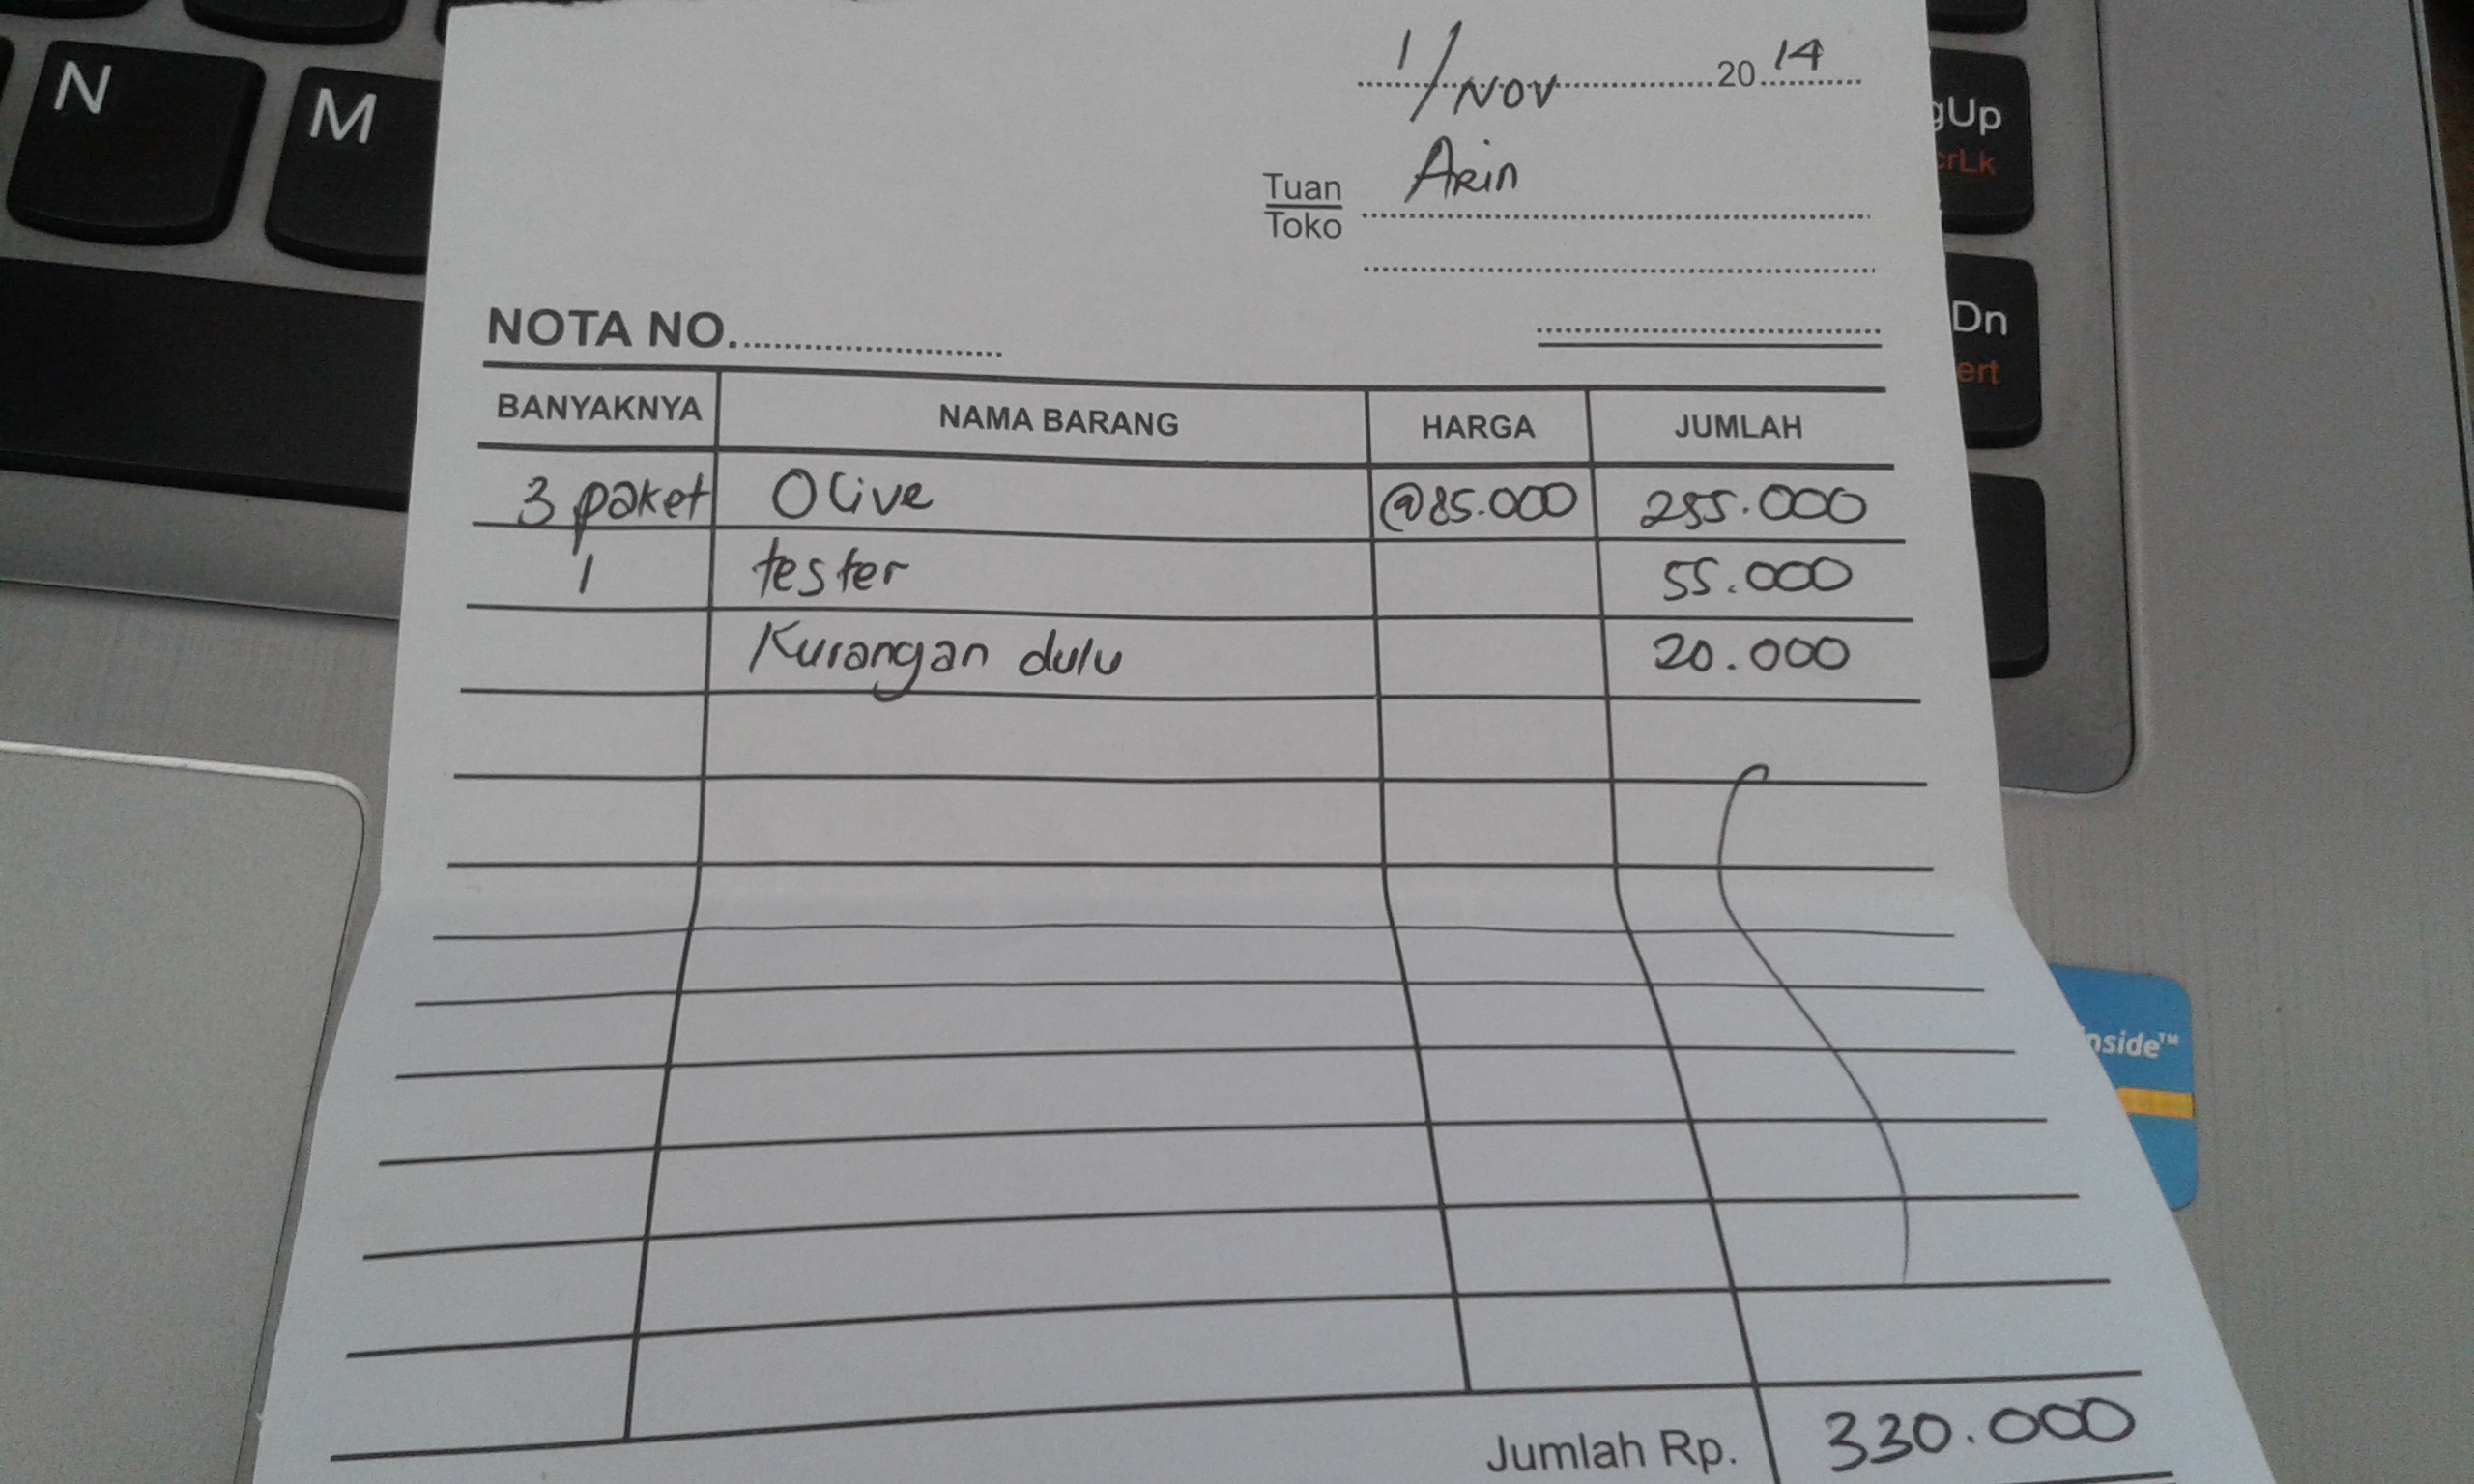 N
M
gUp
crLk
Dn
ert
1/Nov 2014
Tuan Arin
Toko
NOTA NO.
BANYAKNYA NAMA BARANG HARGA JUMLAH
3 paket Olive @85.000 255.000
1 tester 55.000
Kurangan dulu 20.000
nside™
Jumlah Rp. 330.000